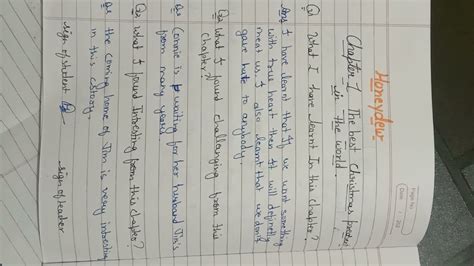 Page No.
Date / 20
Honeydew
Chapter 1 The best Christmas present
in the world.
Q1 What I have learnt In this chapter?
Ans I have learnt that If we want something
with true heart then It will definetly
meat us. I also learnt that we don't
gave hate to anybody.
Q2 What I found challanging from this
chapter?
Connie is waiting for her husband Jim's
from many years.
Q3 What I found Interesting from this chapter?
the coming home of Jim is very interesting
in this cstory.
sign of student
sign of teacher